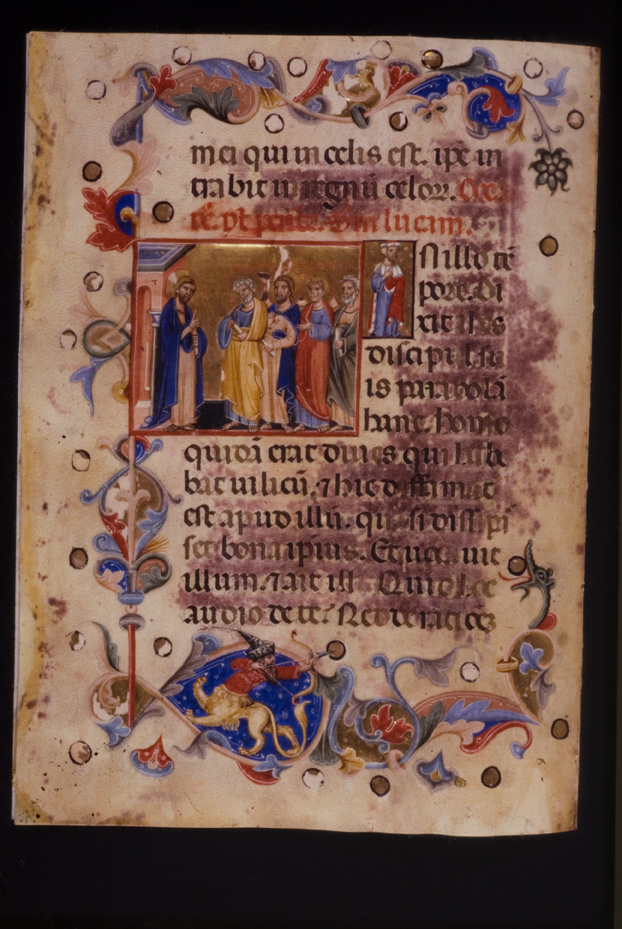 mei qui in celis est. ipe in
trabit in regnū celoꝝ.
in lucam.
N illo tē
pore. Di
xit ihs
discipul. su
is parabolā
hanc. homo
quidā erat dives qui habe
bat vilicū. ⁊ hic diffamat
est apud illū. quasi dissipa
set bona ipius. Et vocavit
illum. ⁊ ait illi. Quid hoc
audio de te? Redde racōēz